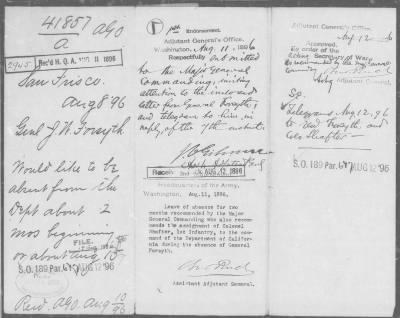 41857 AGO
A
2945 Rec'd H.Q.A. 11 1896
San Frisco.
Aug 8 96
Genl J W Forsyth
Would like to be
absent from the
Dept about 2
mos beginning
or about Aug 15
FILE.
S.O. 189 Par. AUG 12 '96
Recd. AGO. Aug 10/96
1st Endorsement.
Adjutant General's Office,
Washington, Aug 11, 1896
Respectfully submitted
to the Major General
Commanding, inviting
attention to the inclosed
letter from General Forsyth,
and telegram to him, in
reply, of the 7th instant.
Assistant Adjutant General
Received AUG 12 1896
Headquarters of the Army,
Washington, Aug. 11, 1896.
Leave of absence for two
months recommended by the Major
General Commanding who also recom-
mends the assignment of Colonel
Shafter, 1st Infantry, to the com-
mand of the Department of Califor-
nia during the absence of General
Forsyth.
Assistant Adjutant General.
Adjutant General's Office,
Aug 12 1896
Approved.
By order of the
Acting Secretary of War
Adjutant General.
Telegrams Aug 12, 96
to Genl Forsyth, and
Col. Shafter
S.O. 189 Par. AUG 12 '96